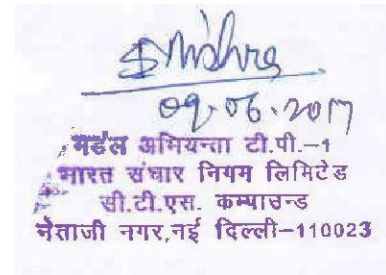 SMishra
09.06.2017
मडंल अभियन्ता टी.पी.–1
भारत संचार निगम लिमिटेड
सी.टी.एस. कम्पाउन्ड
नेताजी नगर,नई दिल्ली–110023